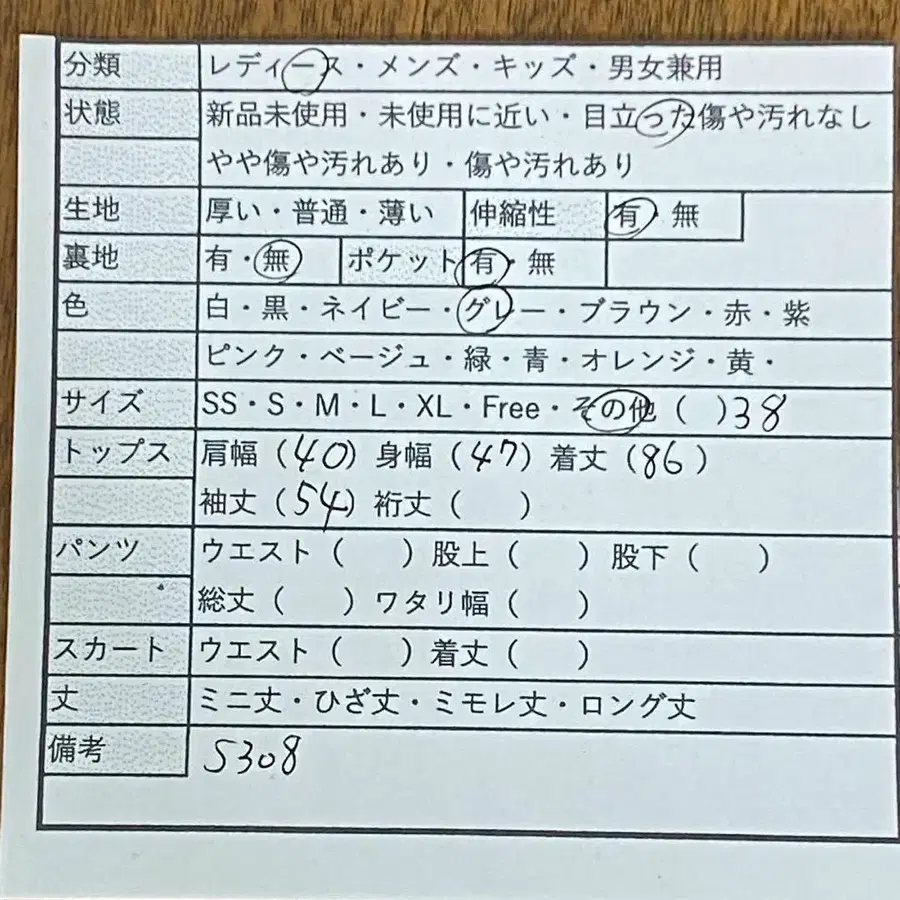 分類 レディース・メンズ・キッズ・男女兼用
状態 新品未使用・未使用に近い・目立った傷や汚れなし
やや傷や汚れあり・傷や汚れあり
生地 厚い・普通・薄い 伸縮性 有・無
裏地 有・無 ポケット 有・無
色 白・黒・ネイビー・グレー・ブラウン・赤・紫
ピンク・ベージュ・緑・青・オレンジ・黄・
サイズ SS・S・M・L・XL・Free・その他 ( )38
トップス 肩幅 (40) 身幅 (47) 着丈 (86)
袖丈 (54) 裄丈 ( )
パンツ ウエスト ( ) 股上 ( ) 股下 ( )
総丈 ( ) ワタリ幅 ( )
スカート ウエスト ( ) 着丈 ( )
丈 ミニ丈・ひざ丈・ミモレ丈・ロング丈
備考 S308